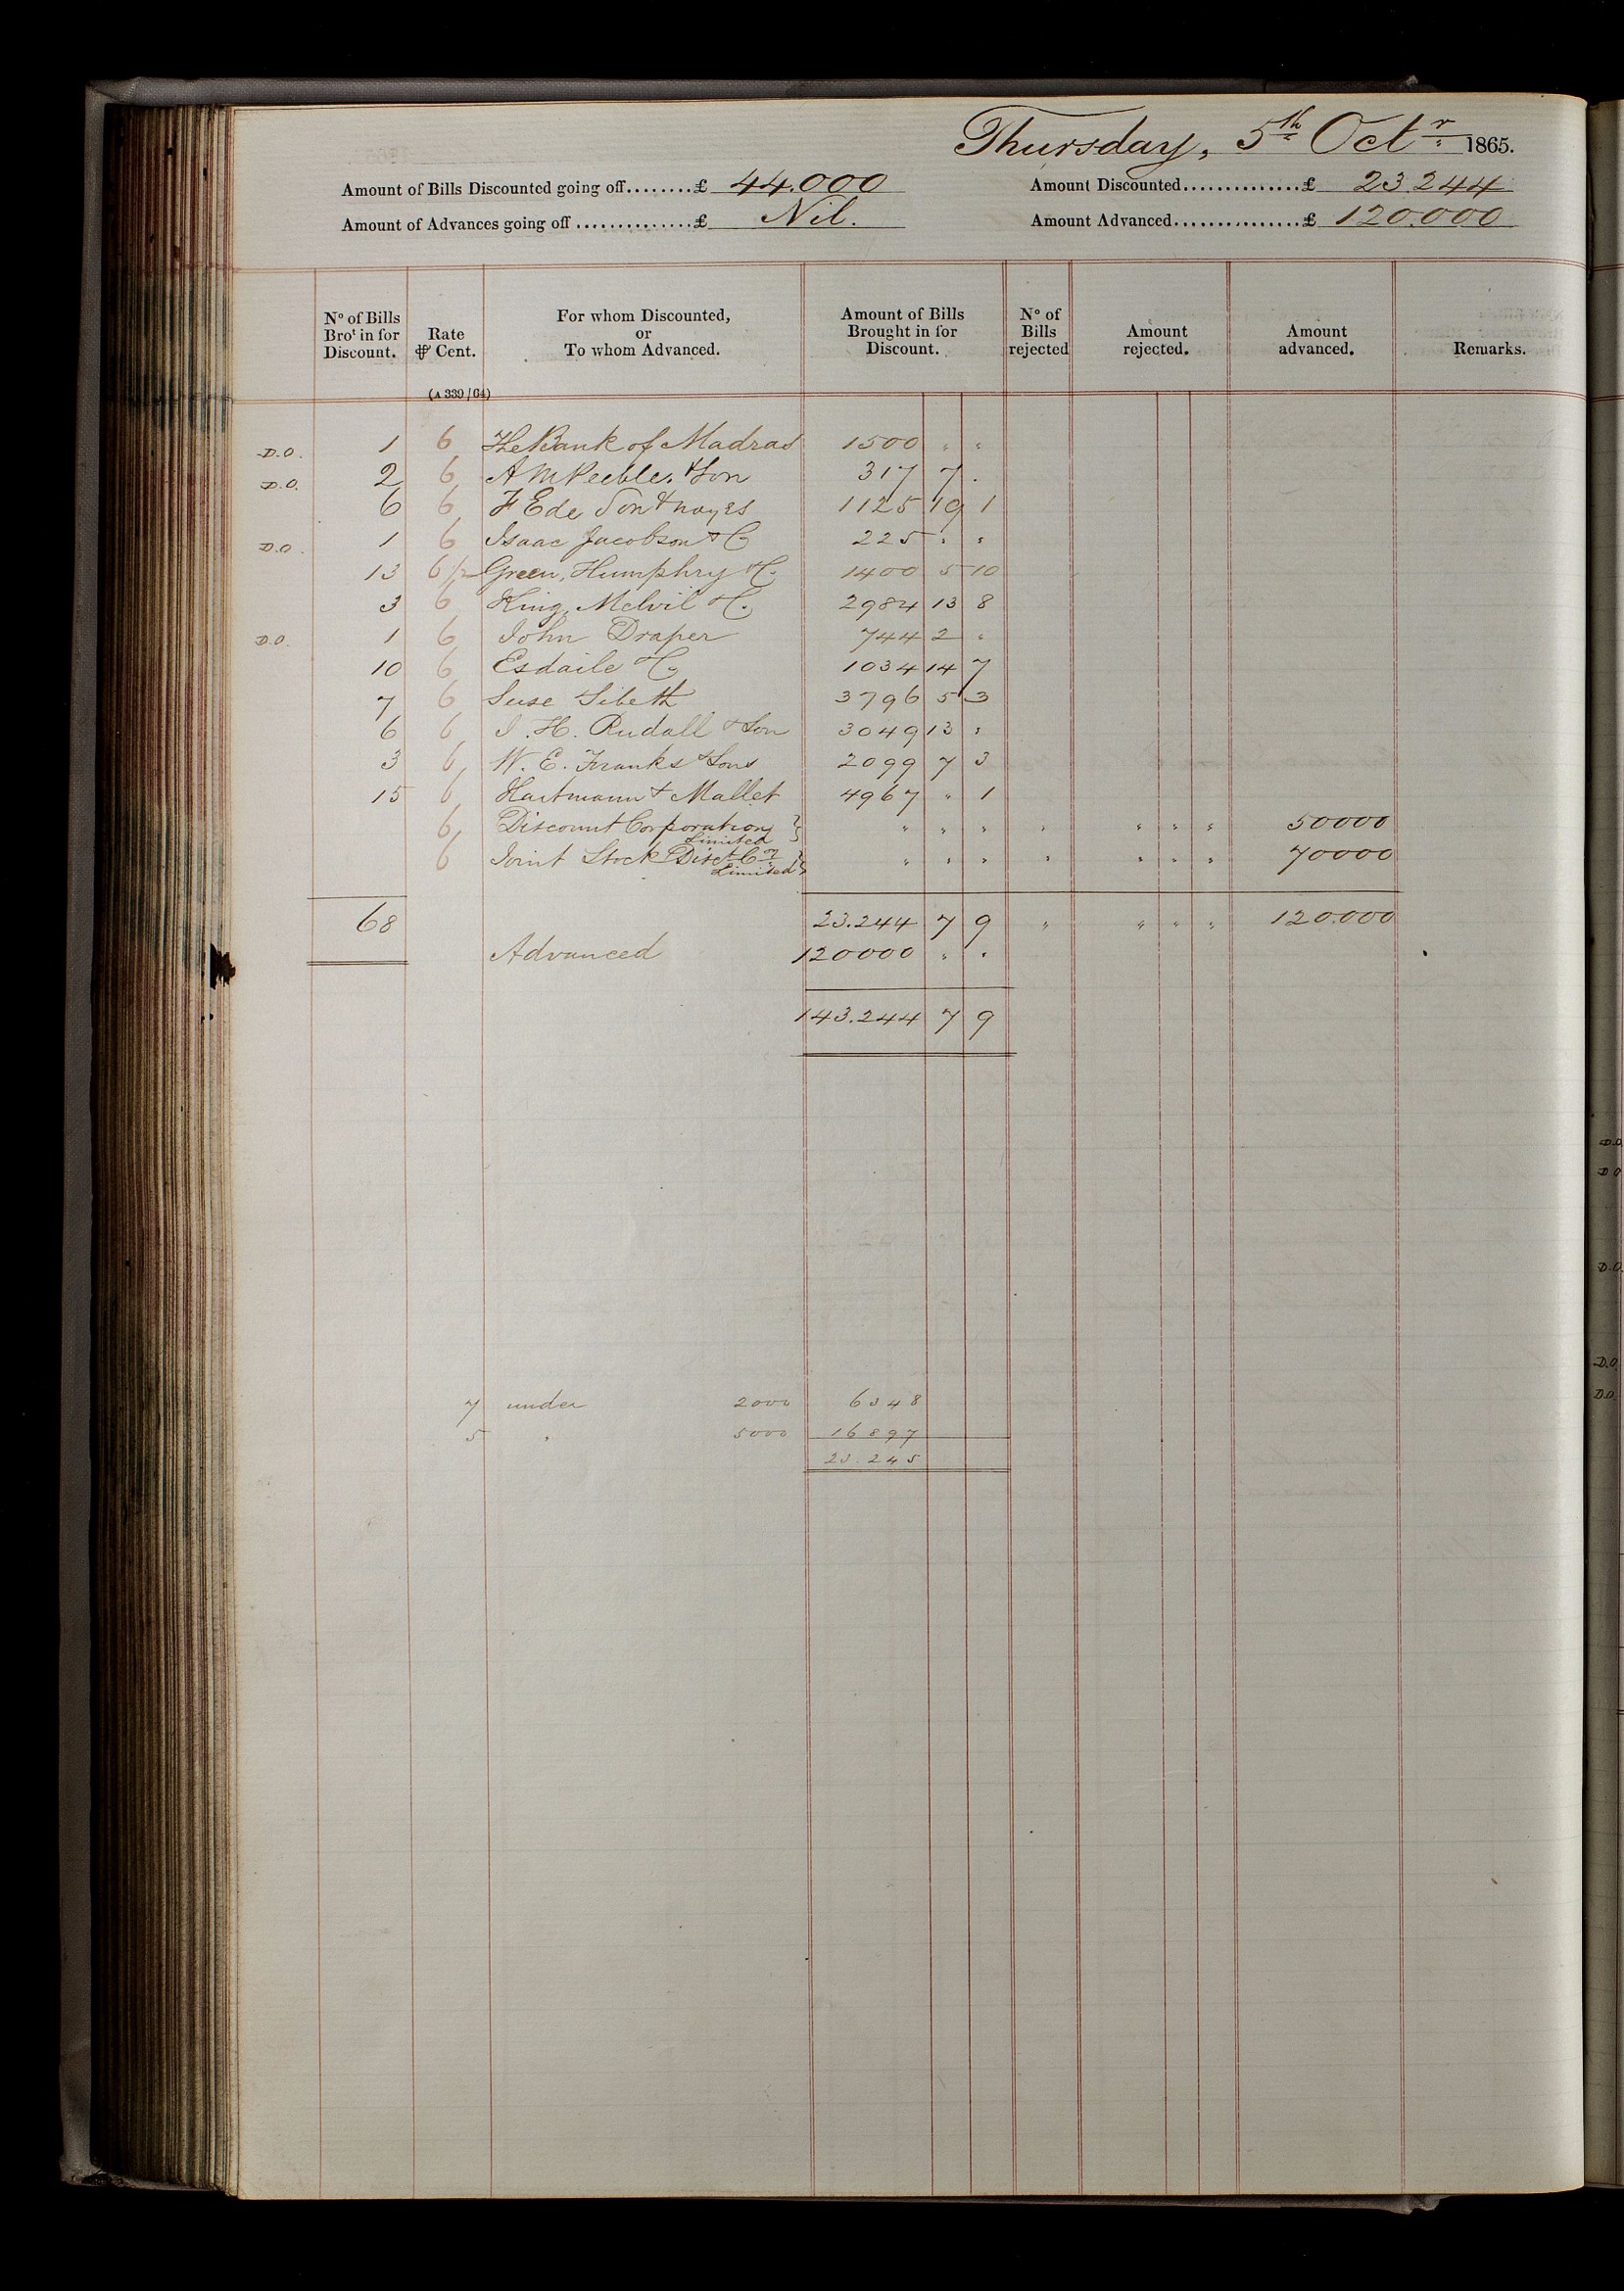 Thursday, 5th Octr 1865.
Amount of Bills Discounted going off........£ 44.000
Amount Discounted..............£ 23244
Amount of Advances going off ..............£ Nil.
Amount Advanced...............£ 120.000
No of Bills Brot in for Discount. Rate ⅌ Cent. For whom Discounted, or To whom Advanced. Amount of Bills Brought in for Discount. No of Bills rejected Amount rejected. Amount advanced. Remarks.
(A 339/64)
D.O. 1 6 The Bank of Madras 1500 " "
D.O. 2 6 A M Peebles & Son 317 7 .
6 6 F Ede Son & Noyes 1125 19 1
D.O. 1 6 Isaac Jacobson & Co 225 " "
13 6½ Green, Humphry & Co 1400 5 10
3 6 King, Melvil & Co. 2984 13 8
D.O. 1 6 John Draper 744 2 "
10 6 Esdaile & Co 1034 14 7
7 6 Suse Sibeth 3796 5 3
6 6 J. H. Rudall & Son 3049 13 "
3 6 W. E. Franks & Sons 2099 7 3
15 6 Hartmann & Mallet 4967 " 1
6 Discount Corporation } " " " " " " " 50000
Limited
6 Joint Stock Disct Coy } " " " " " " " 70000
Limited
68 23.244 7 9 " " " " 120.000
Advanced 120000 " "
143.244 7 9
7 under 2000 6348
5 " 5000 16897
23.245
D.O
D O
D.O.
D.O
D.O.